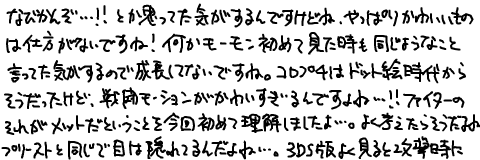 なびかんぞ…!! とか思ってた気がするんですけどね、やっぱりかわいいもの
は仕方がないですね! 何かモーモン初めて見た時も同じようなこと
言ってた気がするので成長してないですね。コロプ4はドット絵時代から
そうだったけど、戦闘モーションがかわいすぎるんですよね…!! ファイターの
それがメットだということを今回初めて理解しましたよ…。よく考えたらそうだよね
プリーストと同じで目は隠れてるんだよね…。3DS版よく見ると攻撃時に